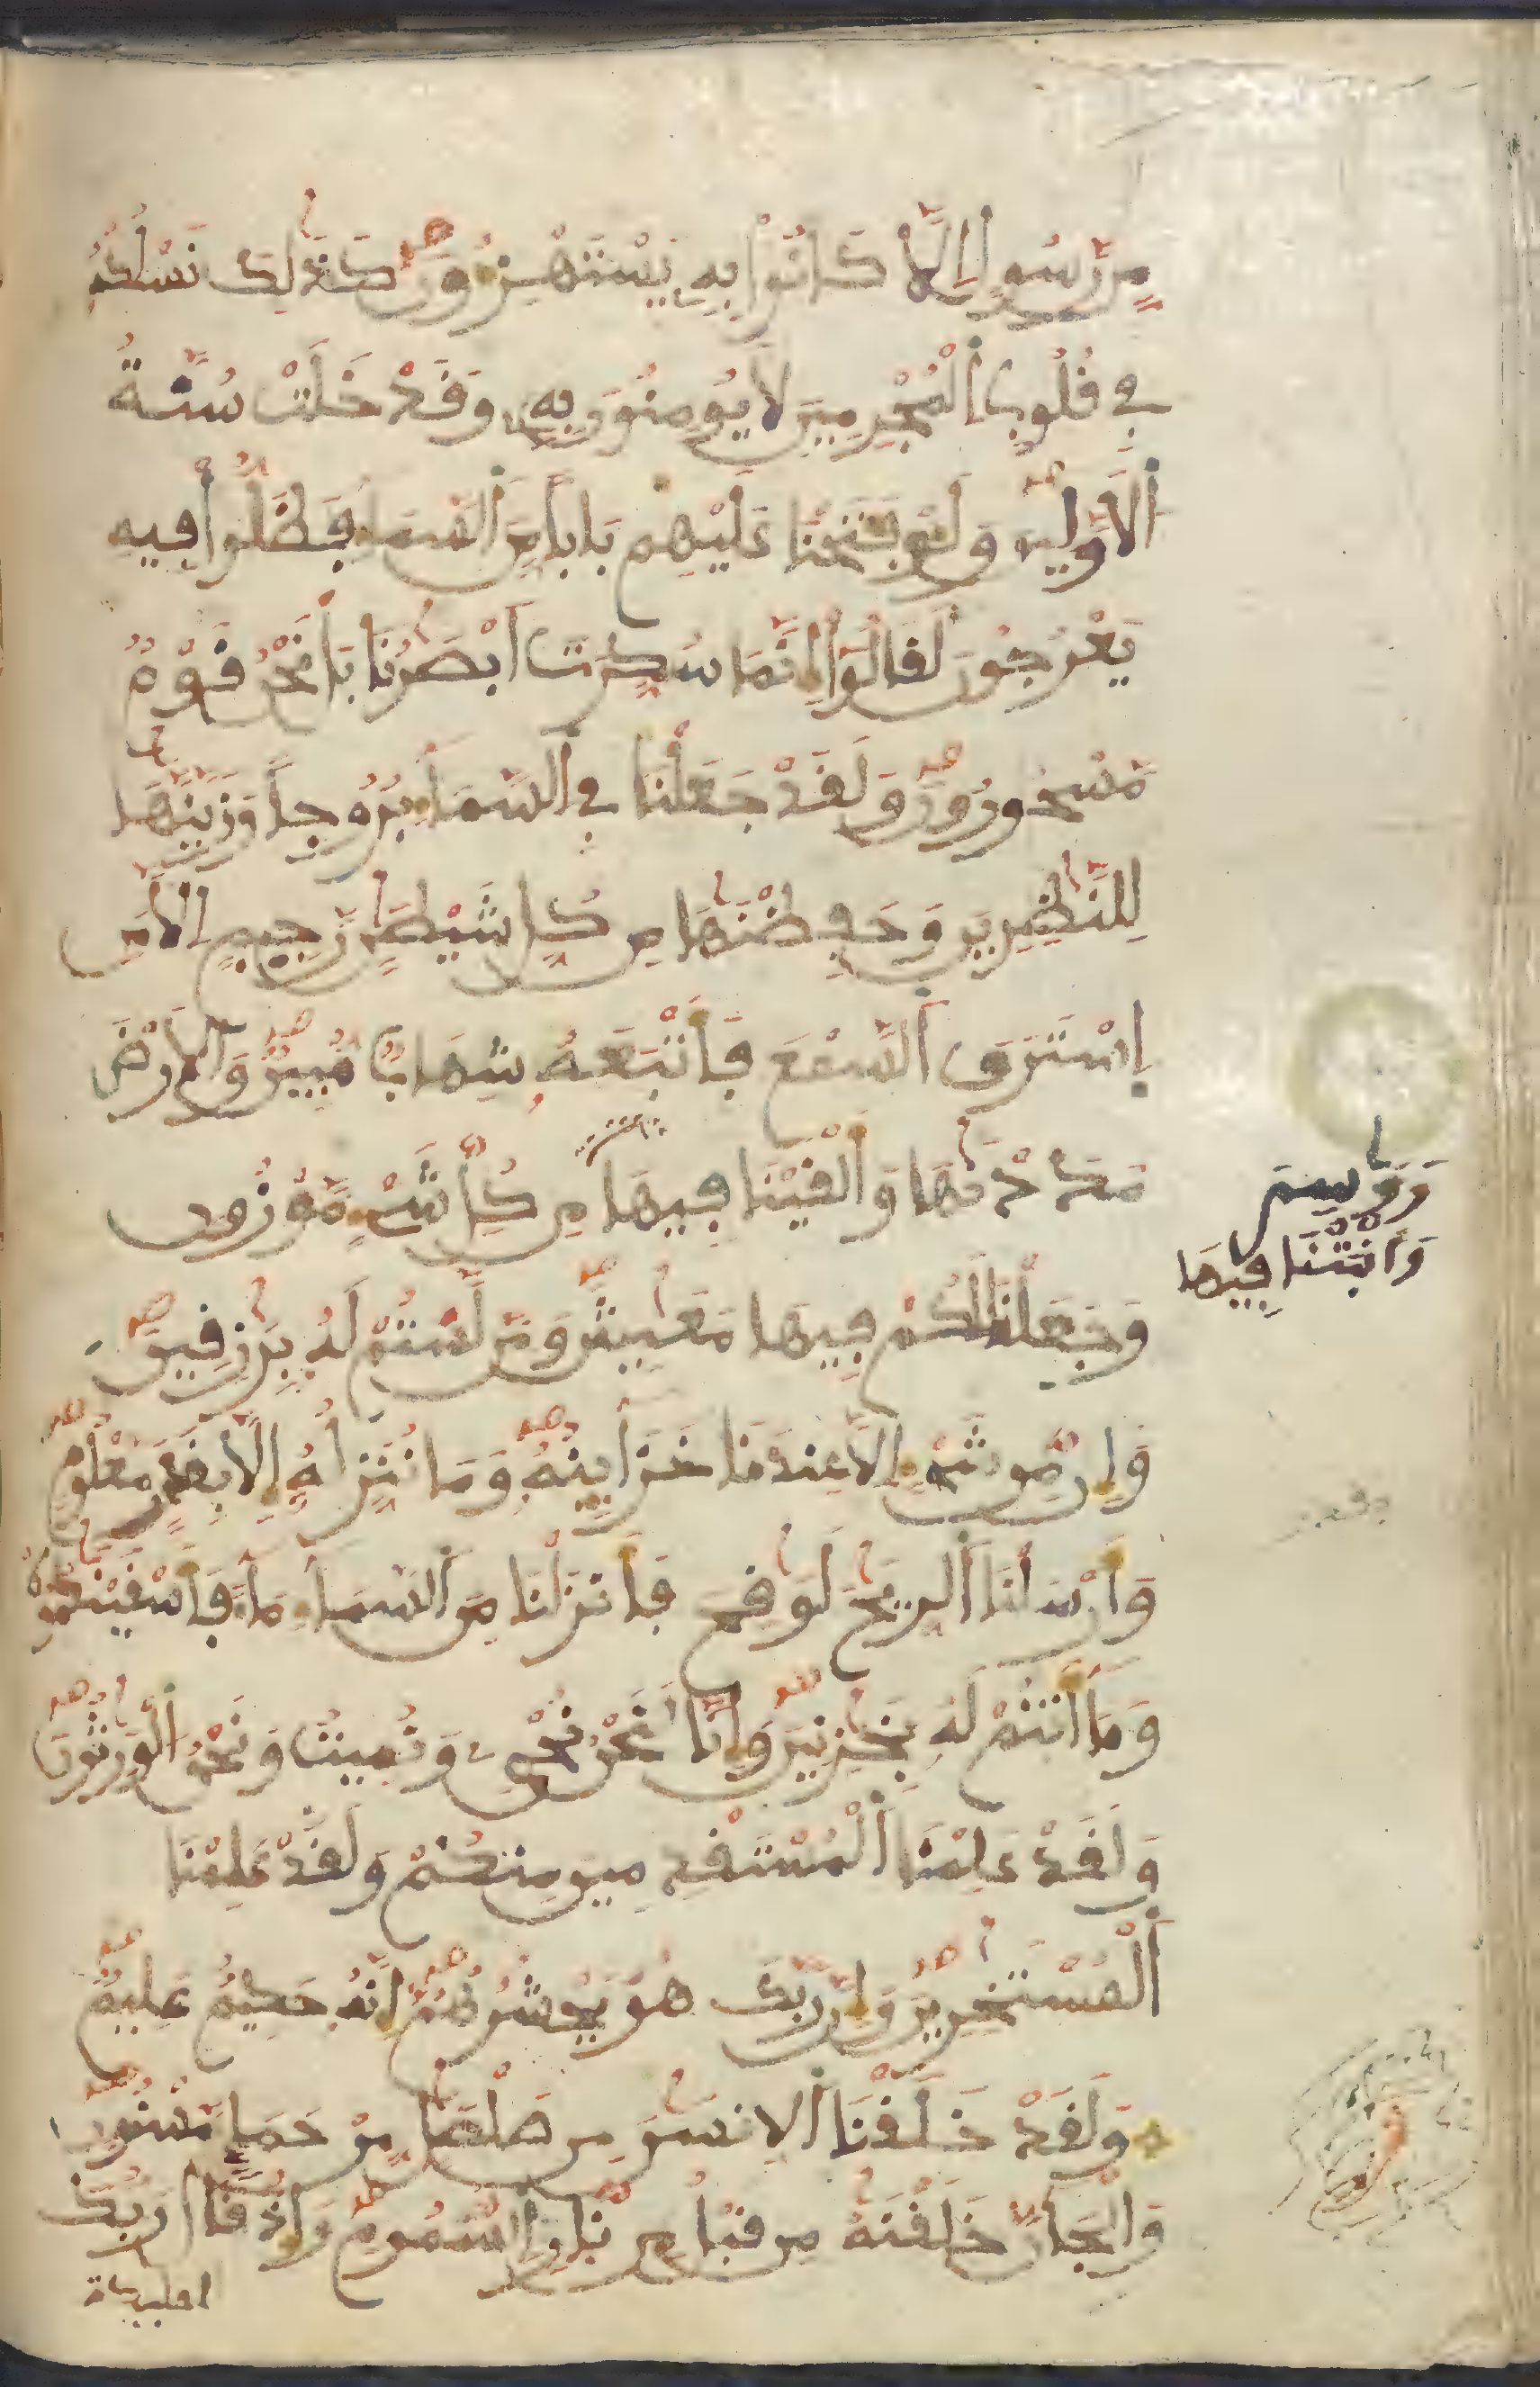 مِّن رَّسُولٍ إِلَّا كَانُوا۟ بِهِۦ يَسْتَهْزِءُونَ كَذَٰلِكَ نَسْلُكُهُۥ
فِي قُلُوبِ ٱلْمُجْرِمِينَ لَا يُومِنُونَ بِهِۦ وَقَدْ خَلَتْ سُنَّةُ
ٱلْأَوَّلِينَ وَلَوْ فَتَحْنَا عَلَيْهِم بَاباً مِّنَ ٱلسَّمَآءِ فَظَلُّوا۟ فِيهِ
يَعْرُجُونَ لَقَالُوٓا۟ إِنَّمَا سُكِّرَتَ ابْصَٰرُنَا بَلْ نَحْنُ قَوْمٌ
مَّسْحُورُونَ وَلَقَدْ جَعَلْنَا فِي ٱلسَّمَآءِ بُرُوجاً وَزَيَّنَّٰهَا
لِلنَّٰظِرِينَ وَحَفِظْنَٰهَا مِن كُلِّ شَيْطَٰنٍ رَّجِيمٍ إِلَّا مَنِ
اِسْتَرَقَ ٱلسَّمْعَ فَأَتْبَعَهُۥ شِهَابٌ مُّبِينٌ وَٱلْأَرْضَ
مَدَدْنَٰهَا وَأَلْقَيْنَا فِيهَا مِن كُلِّ شَيْءٍ مَّوْزُونٍ
رَوَٰسِيَ
وَأَنۢبَتْنَا فِيهَا
وَجَعَلْنَا لَكُمْ فِيهَا مَعَٰيِشَ وَمَن لَّسْتُمْ لَهُۥ بِرَٰزِقِينَ
وَإِن مِّن شَيْءٍ إِلَّا عِندَنَا خَزَآئِنُهُۥ وَمَا نُنَزِّلُهُۥ إِلَّا بِقَدَرٍ مَّعْلُومٍ
وَأَرْسَلْنَا ٱلرِّيَٰحَ لَوَٰقِحَ فَأَنزَلْنَا مِنَ ٱلسَّمَآءِ مَآءً فَأَسْقَيْنَٰكُمُوهُ
وَمَآ أَنتُمْ لَهُۥ بِخَٰزِنِينَ وَإِنَّا لَنَحْنُ نُحْيِۦ وَنُمِيتُ وَنَحْنُ ٱلْوَٰرِثُونَ
وَلَقَدْ عَلِمْنَا ٱلْمُسْتَقْدِمِينَ مِنكُمْ وَلَقَدْ عَلِمْنَا
ٱلْمُسْتَٰخِرِينَ وَإِنَّ رَبَّكَ هُوَ يَحْشُرُهُمُۥٓ إِنَّهُۥ حَكِيمٌ عَلِيمٌ
وَلَقَدْ خَلَقْنَا ٱلْإِنسَٰنَ مِن صَلْصَٰلٍ مِّنْ حَمَإٍ مَّسْنُونٍ
وَٱلْجَآنَّ خَلَقْنَٰهُ مِن قَبْلُ مِن نَّارِ ٱلسَّمُومِ وَإِذْ قَالَ رَبُّكَ
للمليكة